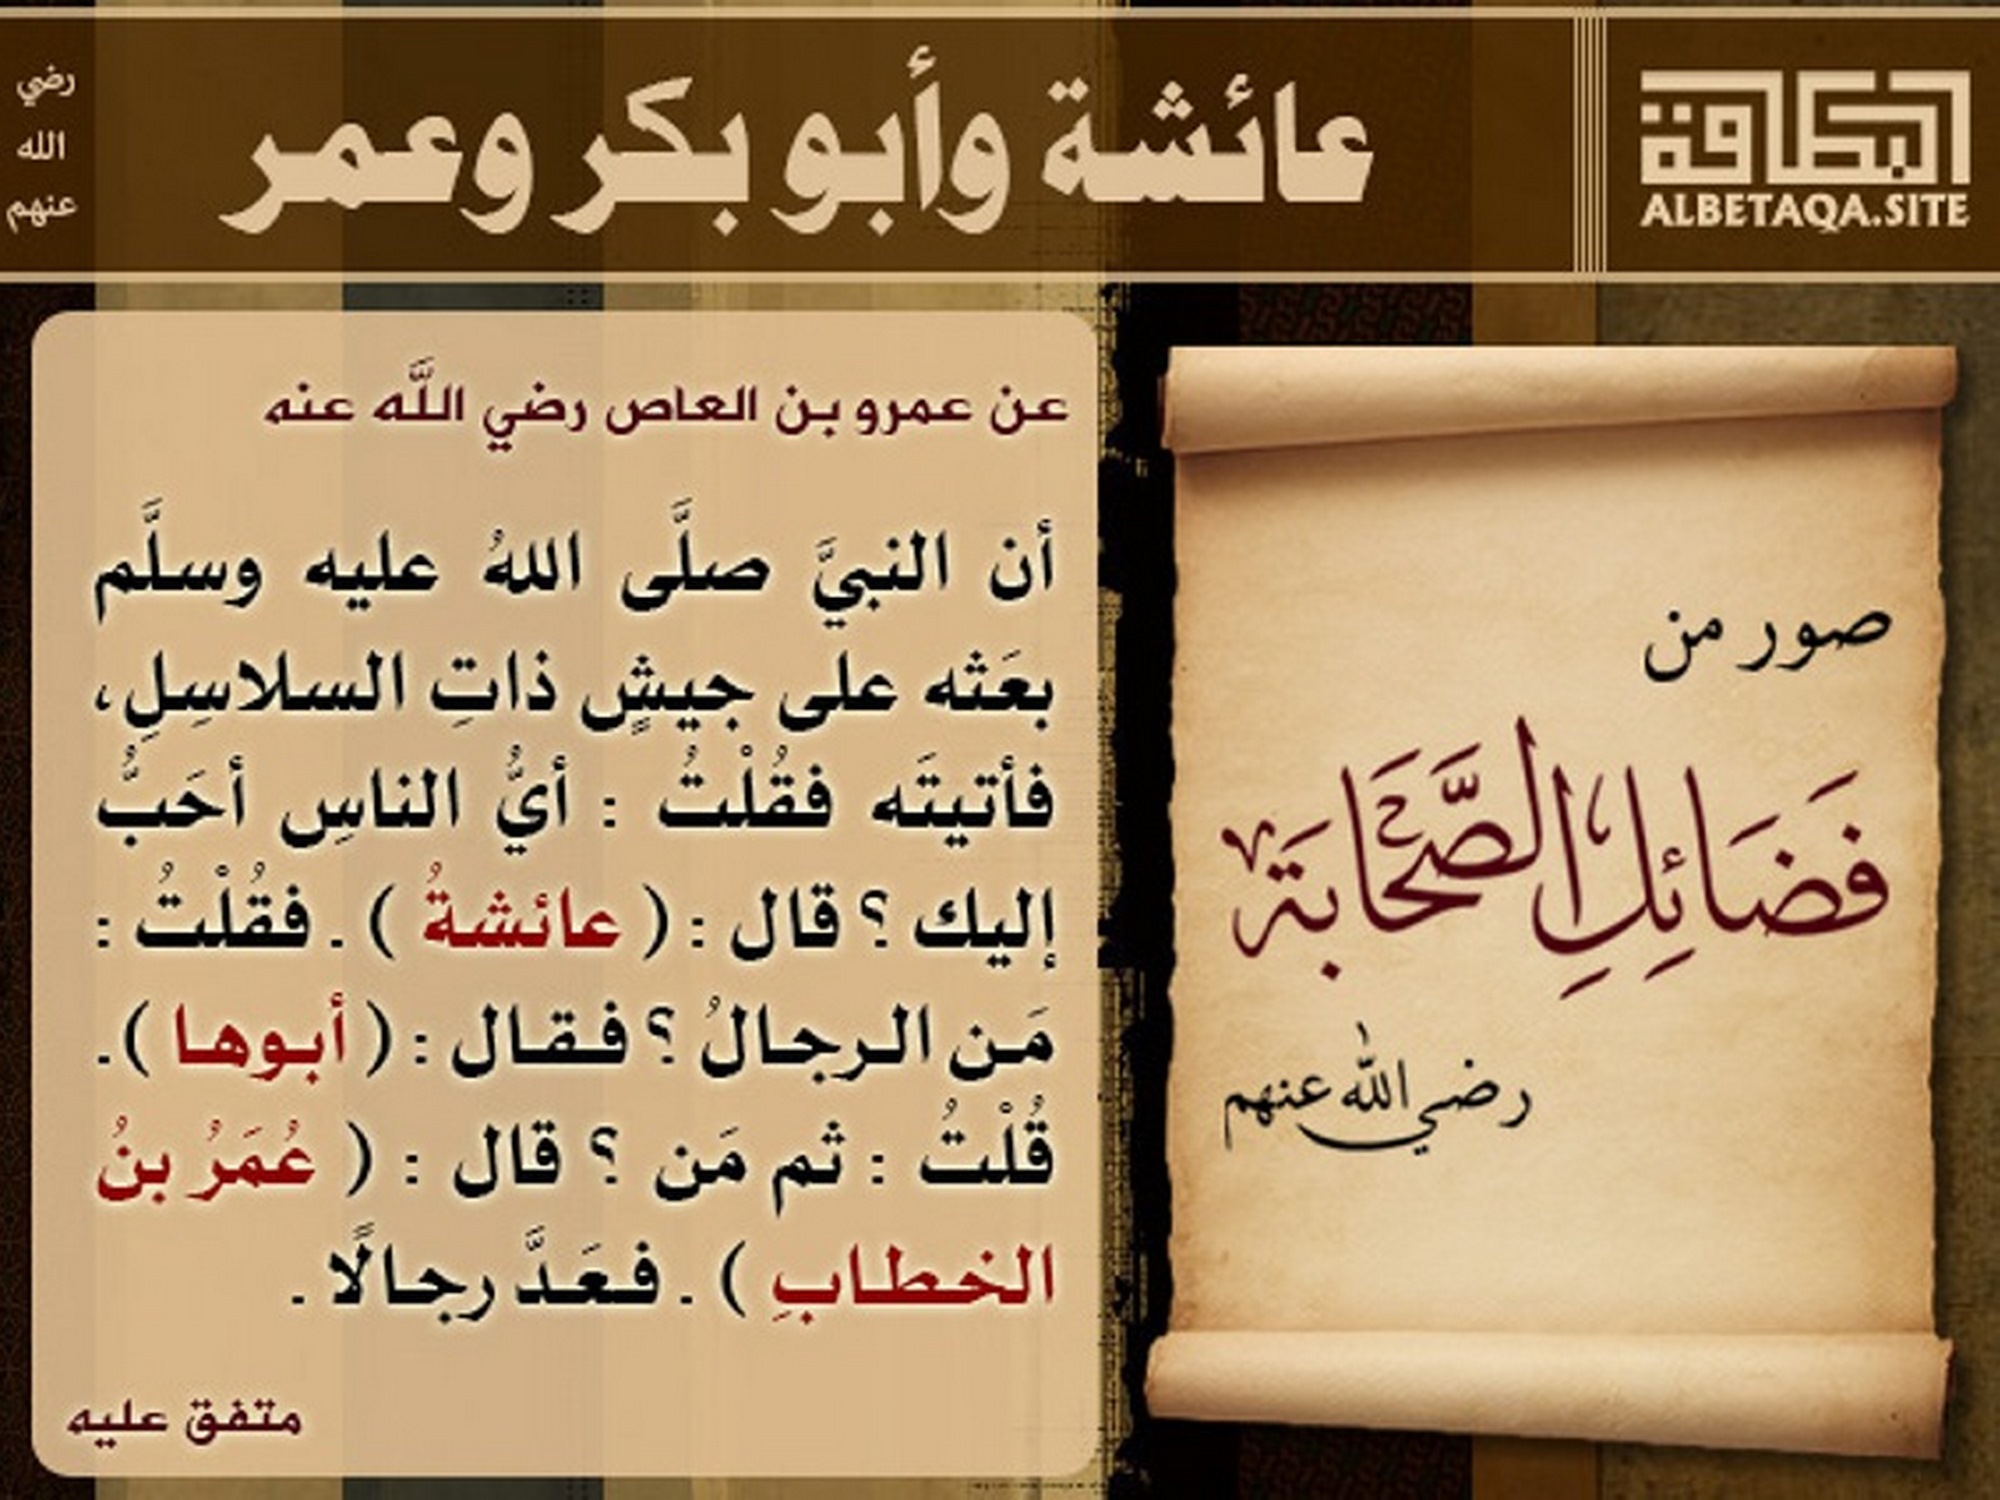 البطاقة
ALBETAQA.SITE
عائشة وأبو بكر وعمر
رضي
الله
عنهم
صور من
فَضَائِلِ الصَّحَابَة
رضي الله عنهم
عن عمرو بن العاص رضي اللَّه عنه
أن النبيَّ صلَّى اللهُ عليه وسلَّم
بعَثه على جيشٍ ذاتِ السلاسِلِ،
فأتيتَه فقُلْتُ : أيُّ الناسِ أحَبُّ
إليك ؟ قال : ( عائشةُ ) . فقُلْتُ :
مَن الرجالُ ؟ فقال : ( أبوها ) .
قُلْتُ : ثم مَن ؟ قال : ( عُمَرُ بنُ
الخطابِ ) . فعَدَّ رجالًا .
متفق عليه